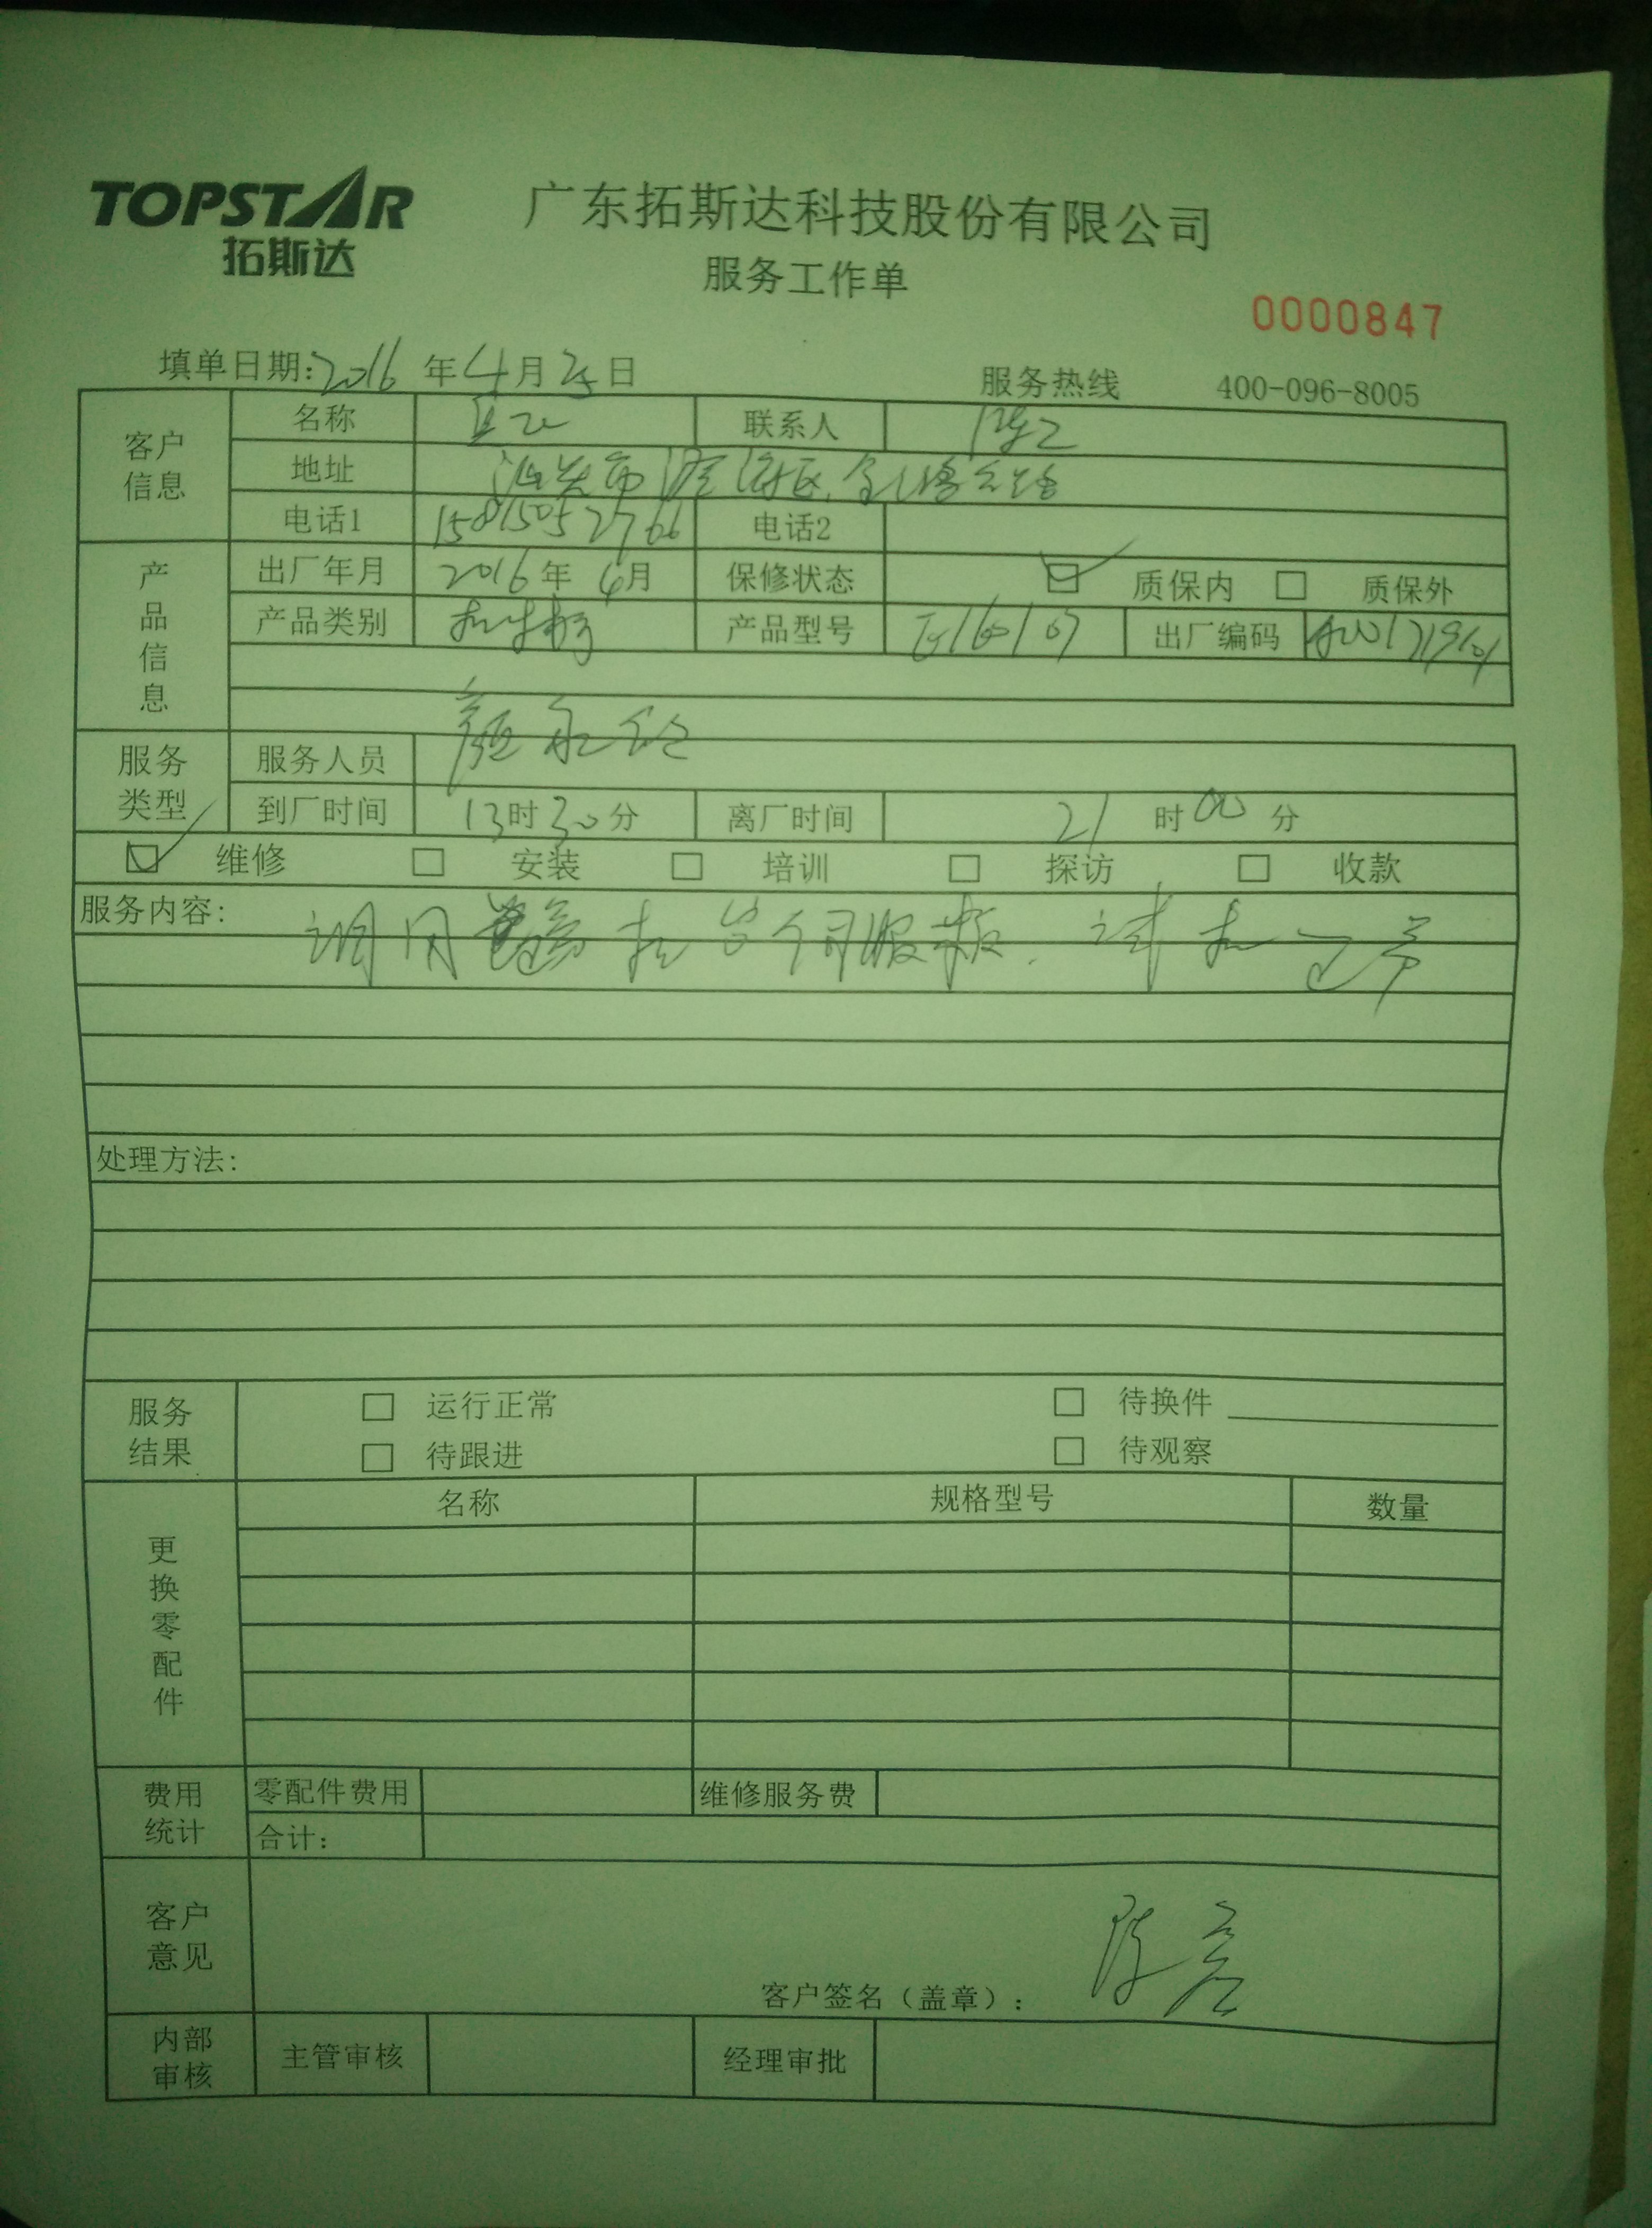 TOPSTAR
拓斯达
广东拓斯达科技股份有限公司
服务工作单
0000847
填单日期: 2016 年 4 月 日
服务热线 400-096-8005
客户信息
名称 联系人 陈工
地址
电话1 15815052766 电话2
产品信息
出厂年月 2016 年 4 月 保修状态 质保内 质保外
产品类别 机械手 产品型号 出厂编码
服务类型
服务人员 颜
到厂时间 13 时 30 分 离厂时间 21 时 00 分
维修 安装 培训 探访 收款
服务内容: 调用 伺服板. 试机
处理方法:
服务结果
运行正常 待换件
待跟进 待观察
更换零配件
名称 规格型号 数量
费用统计
零配件费用 维修服务费
合计:
客户意见
客户签名(盖章): 陈
内部审核
主管审核 经理审批